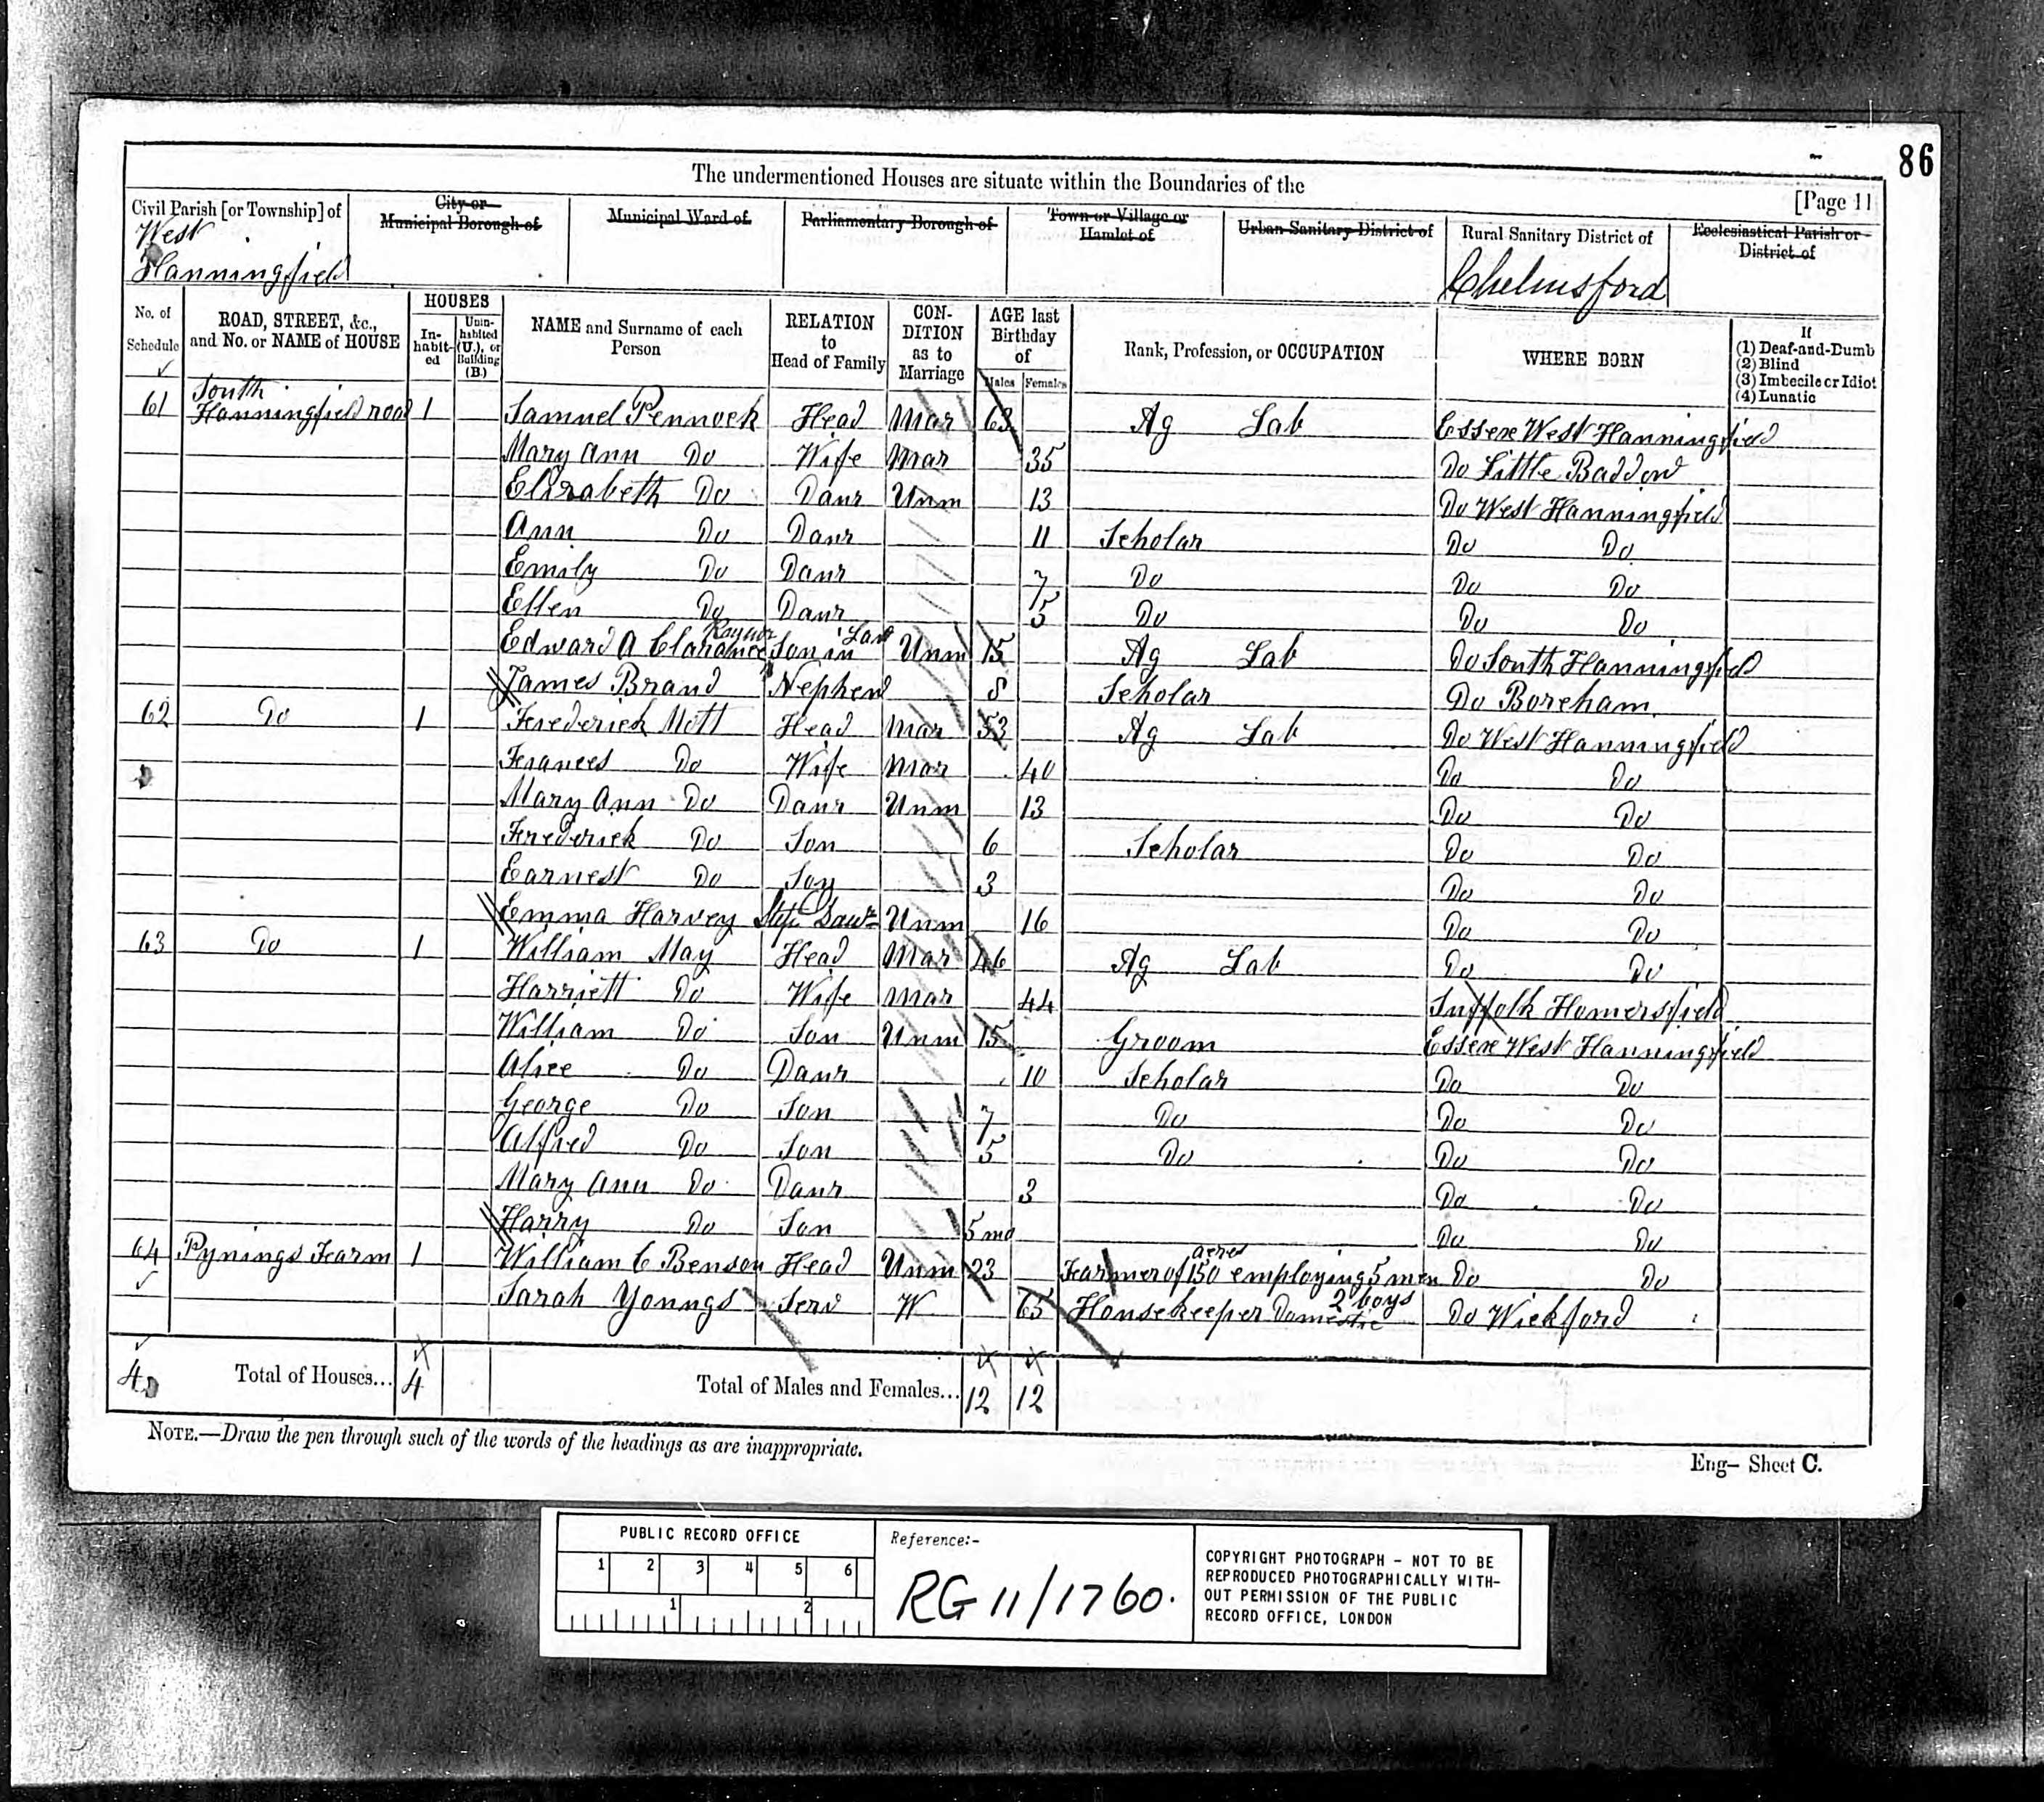 86
The undermentioned Houses are situate within the Boundaries of the
[Page 11
Civil Parish [or Township] of West Hanningfield
City or Municipal Borough of
Municipal Ward of
Parliamentary Borough of
Town or Village or Hamlet of
Urban Sanitary District of
Rural Sanitary District of Chelmsford
Ecclesiastical Parish or District of
No. of Schedule
ROAD, STREET, &c., and No. or NAME of HOUSE
HOUSES
In-habit-ed
Unin-habited (U.), or Building (B.)
NAME and Surname of each Person
RELATION to Head of Family
CON-DITION as to Marriage
AGE last Birthday of
Males Females
Rank, Profession, or OCCUPATION
WHERE BORN
If
(1) Deaf-and-Dumb
(2) Blind
(3) Imbecile or Idiot
(4) Lunatic
61 South Hanningfield road 1 Samuel Pennock Head Mar 63 Ag Lab Essex West Hanningfield
Mary Ann Do Wife Mar 35 Do Little Baddow
Elizabeth Do Daur Unm 13 Do West Hanningfield
Ann Do Daur 11 Scholar Do Do
Emily Do Daur 7 Do Do Do
Ellen Do Daur 5 Do Do Do
Edward A Clarance Son in Law Unm 15 Ag Lab Do South Hanningfield
James Brand Nephew 8 Scholar Do Boreham
62 Do 1 Frederick Mott Head Mar 53 Ag Lab Do West Hanningfield
Frances Do Wife Mar 40 Do Do
Mary Ann Do Daur Unm 13 Do Do
Frederick Do Son 6 Scholar Do Do
Earnest Do Son 3 Do Do
Emma Harvey Step Daur Unm 16 Do Do
63 Do 1 William May Head Mar 46 Ag Lab Do Do
Harriett Do Wife Mar 44 Suffolk Homersfield
William Do Son Unm 15 Groom Essex West Hanningfield
Alice Do Daur 10 Scholar Do Do
George Do Son 7 Do Do Do
Alfred Do Son 5 Do Do Do
Mary Ann Do Daur 3 Do Do
Harry Do Son 5 mo Do Do
64 Pynings Farm 1 William C Benson Head Unm 23 Farmer of 150 acres employing 5 men Do Do
2 boys
Sarah Youngs Serv W 65 Housekeeper Domestic Do Wickford
4 Total of Houses... 4 Total of Males and Females... 12 12
NOTE.—Draw the pen through such of the words of the headings as are inappropriate.
Eng– Sheet C.
PUBLIC RECORD OFFICE
1 2 3 4 5 6
1 2
Reference:-
RG 11/1760.
COPYRIGHT PHOTOGRAPH – NOT TO BE
REPRODUCED PHOTOGRAPHICALLY WITH-
OUT PERMISSION OF THE PUBLIC
RECORD OFFICE, LONDON